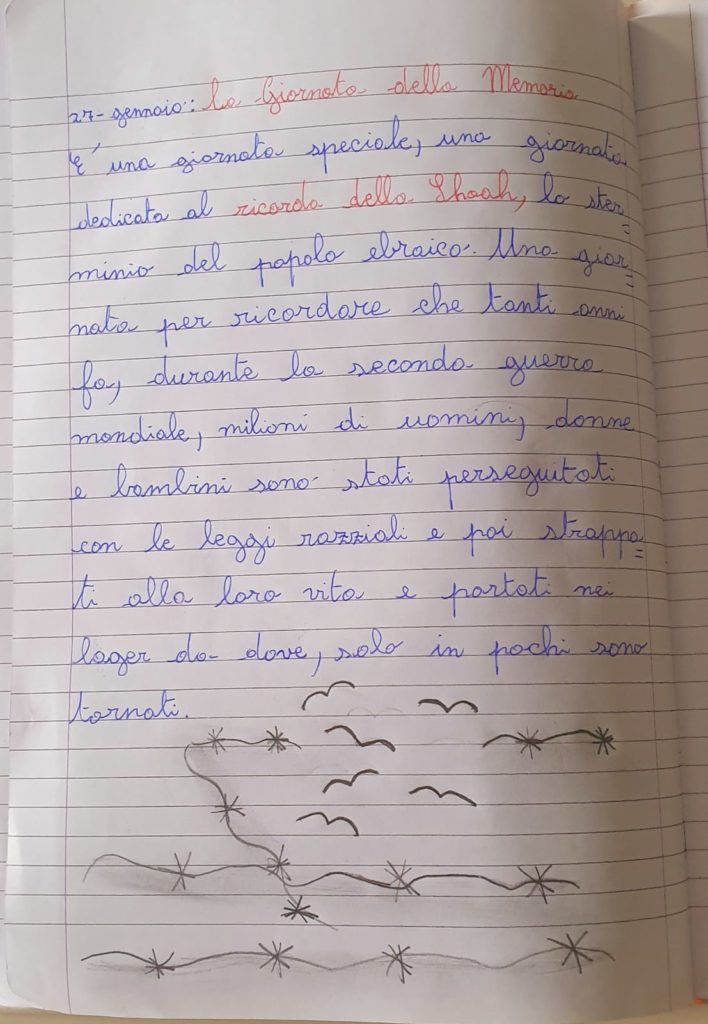 27-gennaio: La Giornata della Memoria
E' una giornata speciale, una giornata
dedicata al ricordo della Shoah, lo ster=
minio del popolo ebraico. Una gior=
nata per ricordare che tanti anni
fa, durante la seconda guerra
mondiale, milioni di uomini, donne
e bambini sono stati perseguitati
con le leggi razziali e poi strappa=
ti alla loro vita e portati nei
lager da dove, solo in pochi sono
tornati.